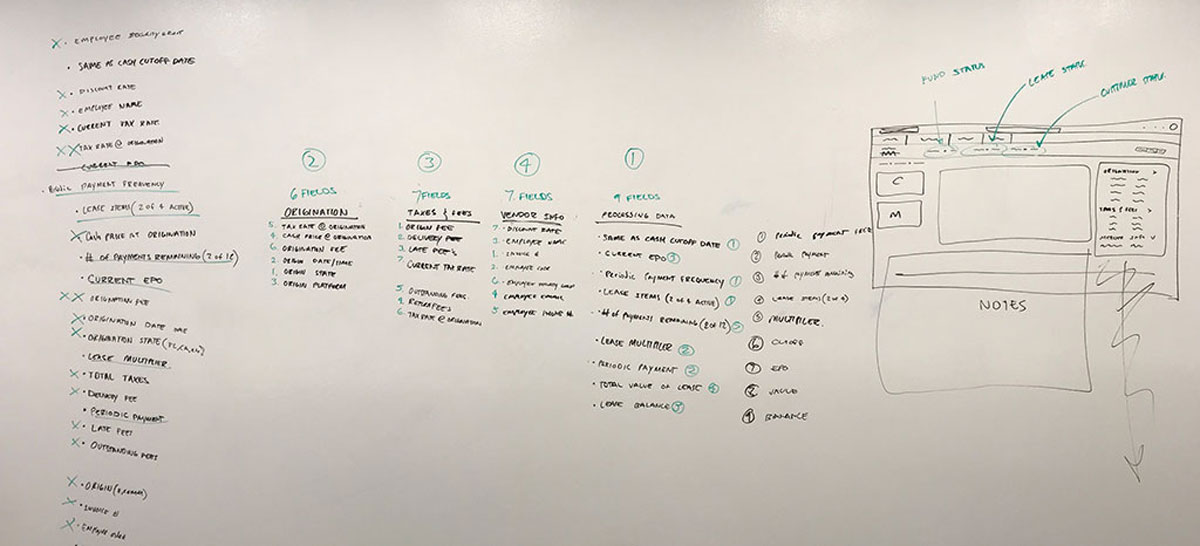 X • EMPLOYEE
• SAME AS CASH CUTOFF DATE
X • DISCOUNT RATE
X • EMPLOYEE NAME
X • CURRENT TAX RATE
XX TAX RATE @ ORIGINATION
CURRENT EPO
PAYMENT FREQUENCY
• LEASE ITEMS (2 OF 4 ACTIVE)
X • CASH PRICE AT ORIGINATION
• # OF PAYMENTS REMAINING (2 OF 12)
CURRENT EPO
XX • ORIGINATION FEE
X • ORIGINATION DATE
X • ORIGINATION STATE
• LEASE MULTIPLIER
X • TOTAL TAXES
X • DELIVERY FEE
• PERIODIC PAYMENT
X • LATE FEES
X • OUTSTANDING FEES
X • ORIGIN
X • INVOICE #
X • EMPLOYEE
2
6 FIELDS
ORIGINATION
5. TAX RATE @ ORIGINATION
4. CASH PRICE @ ORIGINATION
6. ORIGINATION FEE
2. ORIGIN DATE/TIME
1. ORIGIN STATE
3. ORIGIN PLATFORM
3
7 FIELDS
TAXES & FEES
1. ORIGIN FEE
2. DELIVERY FEE
3. LATE FEES
7. CURRENT TAX RATE
5. OUTSTANDING FEES
4. RETURN FEES
6. TAX RATE @ ORIGINATION
4
7. FIELDS
VENDOR INFO
7. DISCOUNT RATE
3. EMPLOYEE NAME
1. INVOICE #
2. EMPLOYEE CODE
6. EMPLOYEE
4. EMPLOYEE
5. EMPLOYEE PHONE #
1
9 FIELDS
PROCESSING DATA
• SAME AS CASH CUTOFF DATE 1
• CURRENT EPO 3
• PERIODIC PAYMENT FREQUENCY 1
• LEASE ITEMS (2 OF 4 ACTIVE)
• # OF PAYMENTS REMAINING (2 OF 12) 5
• LEASE MULTIPLIER 2
• PERIODIC PAYMENT 2
• TOTAL VALUE OF LEASE
• LEASE BALANCE
1 PERIODIC PAYMENT
2 PAYMENT
3 # OF PAYMENTS REMAINING
4 LEASE ITEMS (2 OF 4)
5 MULTIPLIER
6
7 EPO
8 VALUE
9 BALANCE
FUND STATUS
LEASE STATUS
CUSTOMER STATUS
C
M
ORIGINATION >
TAXES & FEES >
INFO V
NOTES